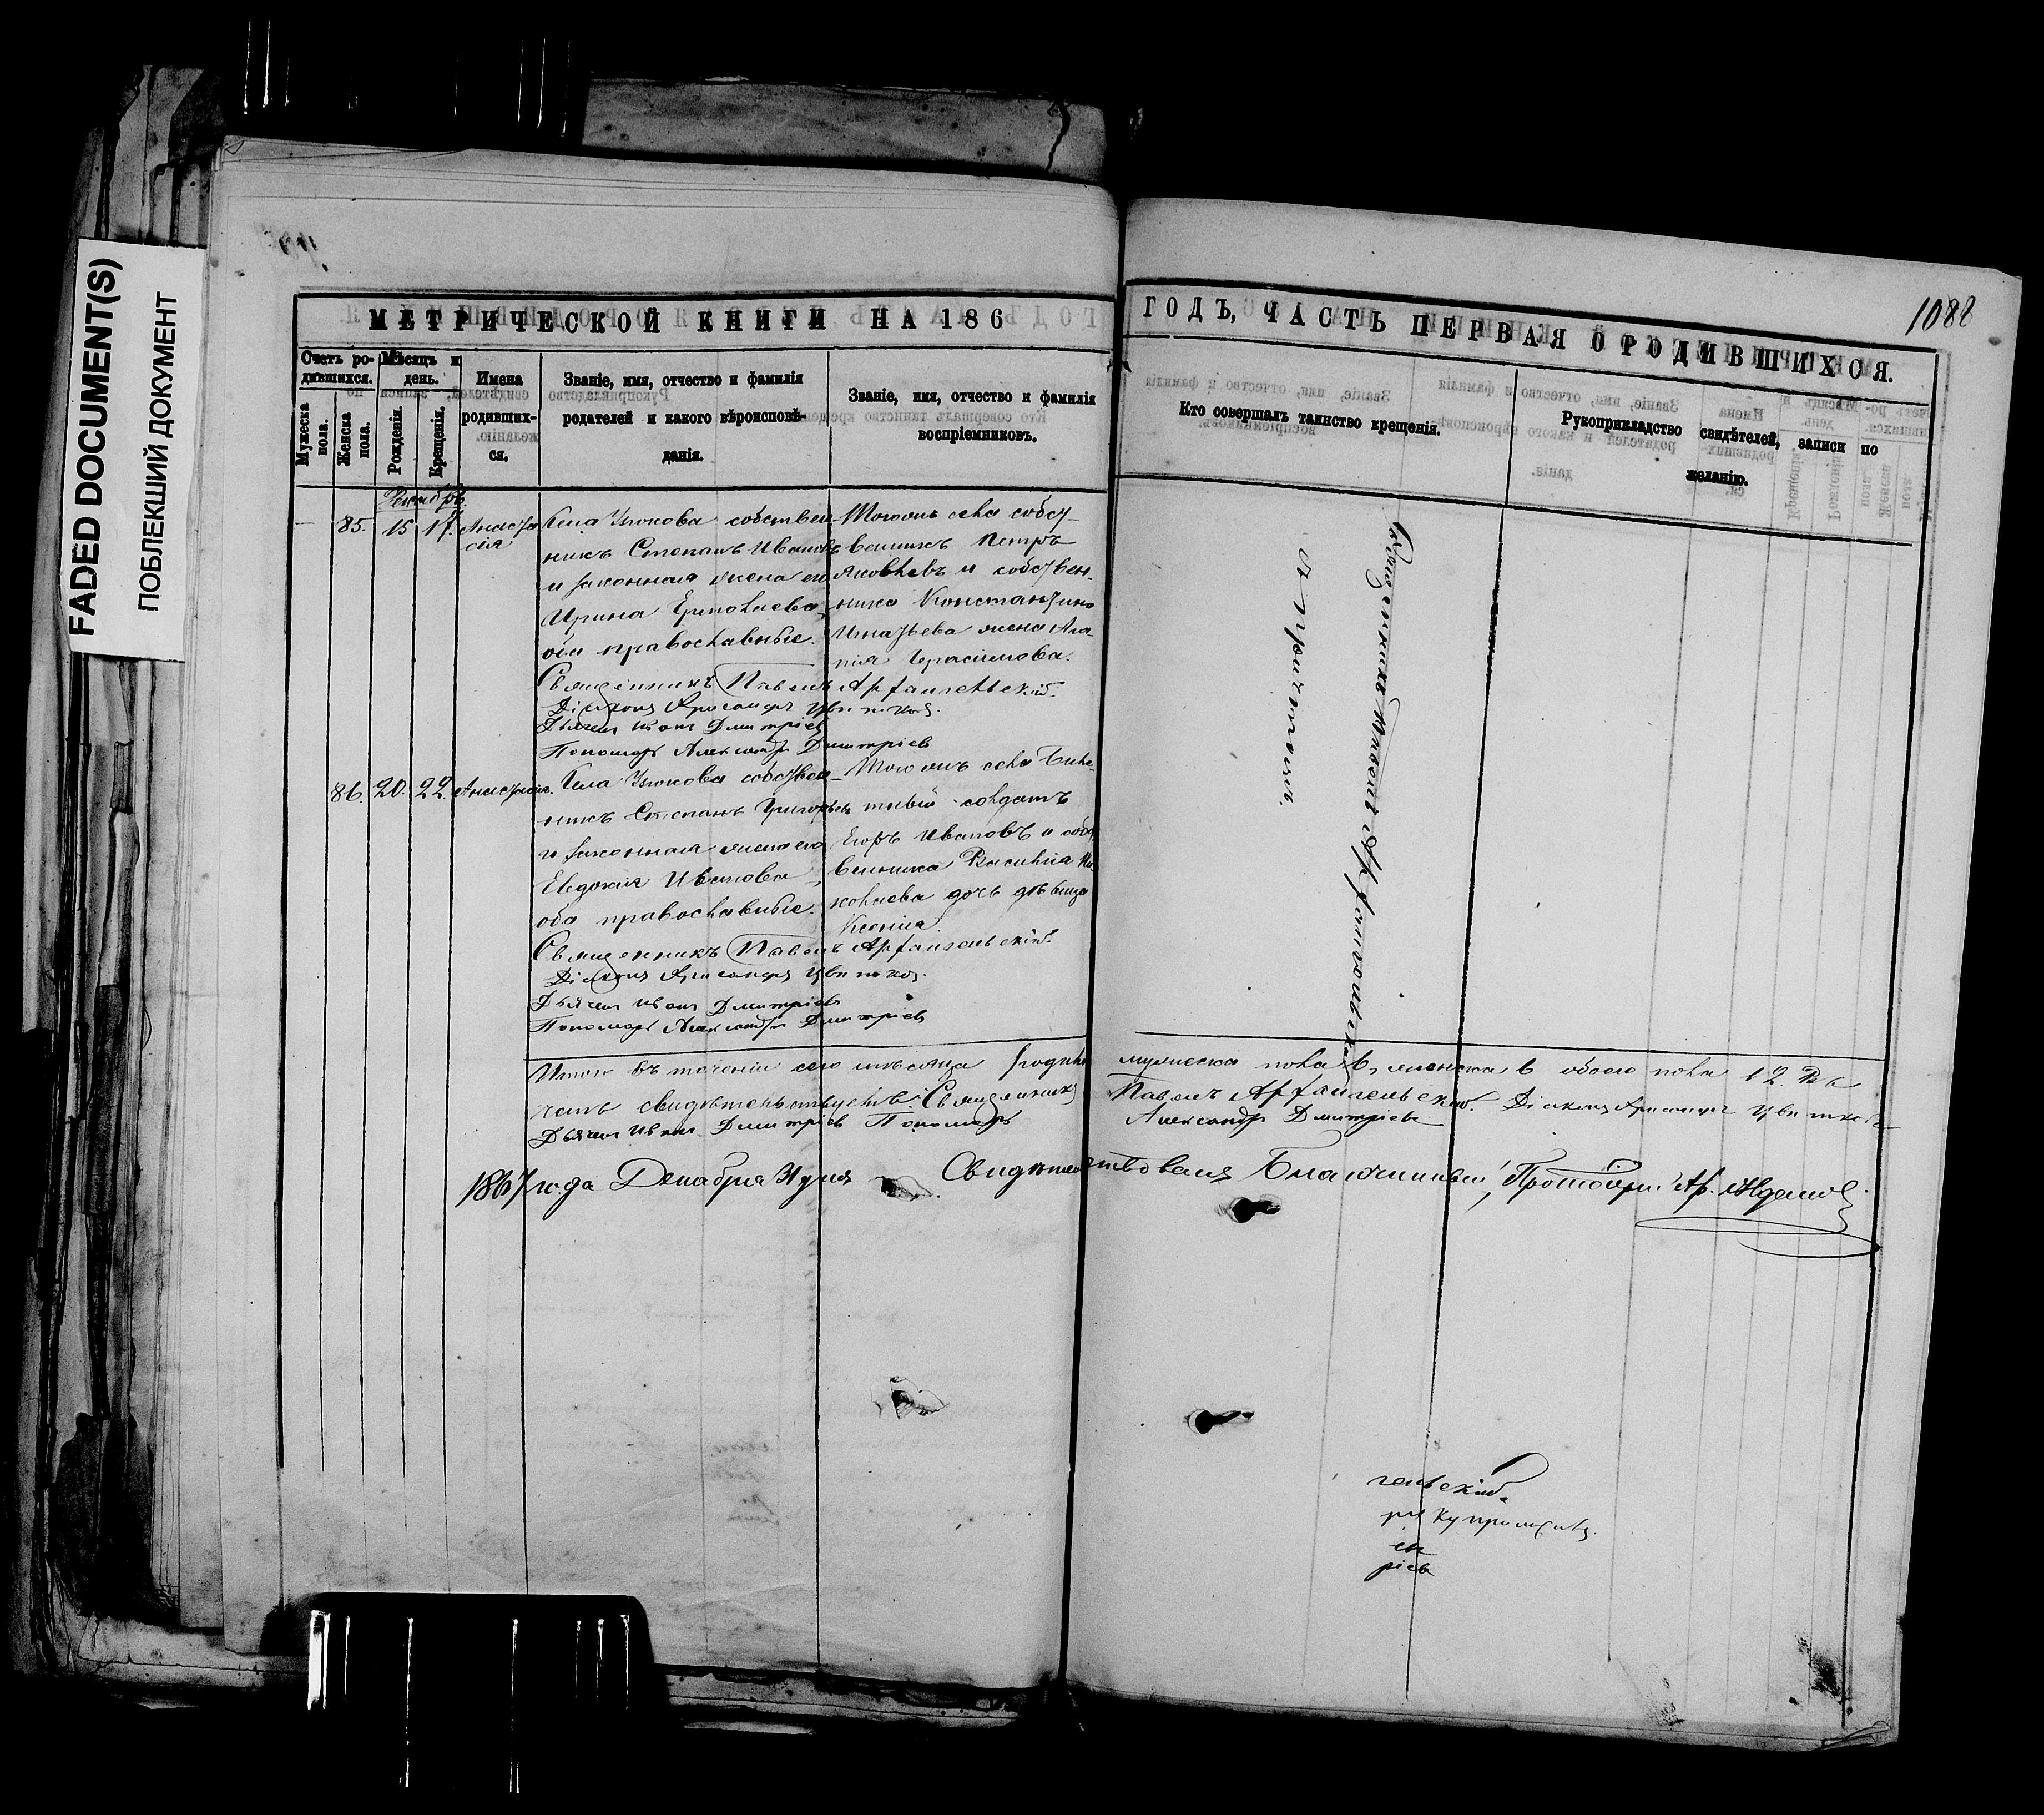 FADED DOCUMENT(S)
ПОБЛЕКШИЙ ДОКУМЕНТ
1088
МЕТРИЧЕСКОЙ КНИГИ НА 186
ГОДЪ, ЧАСТЬ ПЕРВАЯ О РОДИВШИХСЯ.
Счетъ ро-
дившихся.
Мужеска пола.
Женска пола.
Мѣсяцъ и
день.
Рожденія.
Крещенія.
Имена
родивших-
ся.
Званіе, имя, отчество и фамилія
родителей и какого вѣроисповѣ-
данія.
Званіе, имя, отчество и фамилія
воспріемниковъ.
Кто совершалъ таинство крещенія.
Рукоприкладство свидѣтелей, записи по
желанію.
Декабрь
85. 15 17. Анаста
сія
Села собствен-
никъ Степанъ Ивановъ
и законная жена его
Ирина Ермолаева,
оба православные.
Тогожъ села собст-
венникъ Петръ
Яковлевъ и собствен-
ника Константина
Игнатьева жена Ага-
пія Герасимова.
Священникъ Павелъ Архангельскій.
Діаконъ Цвѣтковъ.
Дьячекъ Иванъ Дмитріев
Пономарь Александръ Дмитріев
86. 20. 22. Анастасія.
Села собствен-
никъ Степанъ Григорьевъ
и законная жена его
Евдокія Иванова,
оба православные.
Тогожъ села Биле-
тный солдатъ
Егоръ Ивановъ и собст-
венника Василія Ни-
колаева дочь дѣвица
Ксенія.
Священникъ Павелъ Архангельскій.
Діаконъ Цвѣтков.
Дьячекъ Иванъ Дмитріевъ
Пономарь Александръ Дмитріевъ
Священникъ Павелъ Архангельскій
съ причтомъ.
Итого въ теченіи сего мѣсяца родил. мужеска пола 6, женска 6 обоего пола 12. Въ
чемъ свидѣтельствуемъ: Священникъ Павелъ Архангельскій. Діаконъ Цвѣтковъ
Дьячекъ Иванъ Дмитріев Пономарь Александръ Дмитріевъ
1867 года Декабря 31 дня Свидѣтельствовалъ Благочинный, Протоіерей
гельскій.
ріев